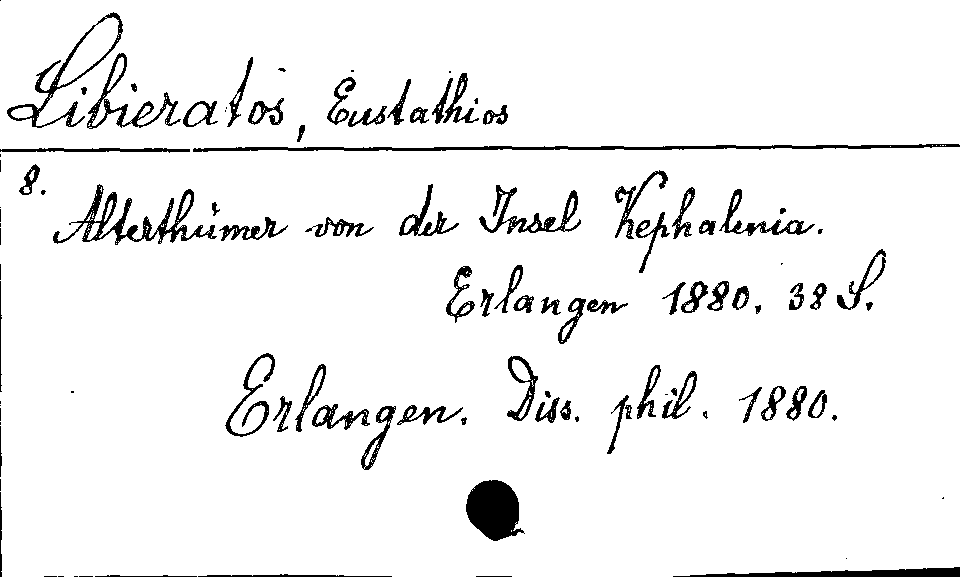 Libieratos, Eustathios
8.
Alterthümer von der Insel Kephalenia.
Erlangen 1880. 38 S.
Erlangen. Diss. phil. 1880.